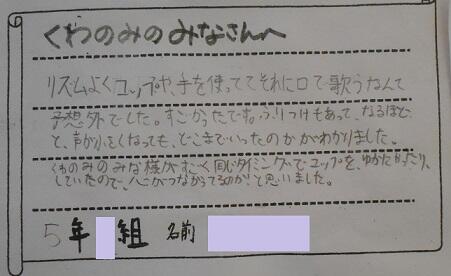 くわのみのみなさんへ
リズムよくコップや、手を使っててそれに口で歌うなんて
予想外でした。すごかったです。ふりつけもあって、なるほど
と、声が小さくなっても、どこまでいったのかがわかりました。
くわのみのみな様がすごく同じタイミングでコップを、ゆかたたいたり、
していたので、心がつながってるのか!と思いました。
5年 組 名前